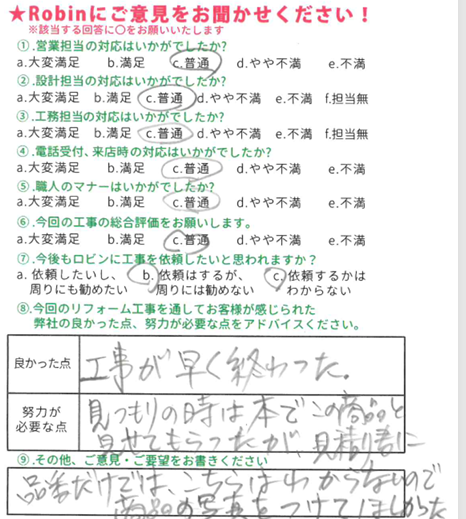 ★Robinにご意見をお聞かせください！
※該当する回答に○をお願いいたします
①.営業担当の対応はいかがでしたか?
a.大変満足 b.満足 c.普通 d.やや不満 e.不満
②.設計担当の対応はいかがでしたか?
a.大変満足 b.満足 c.普通 d.やや不満 e.不満 f.担当無
③.工務担当の対応はいかがでしたか?
a.大変満足 b.満足 c.普通 d.やや不満 e.不満 f.担当無
④.電話受付、来店時の対応はいかがでしたか?
a.大変満足 b.満足 c.普通 d.やや不満 e.不満
⑤.職人のマナーはいかがでしたか?
a.大変満足 b.満足 c.普通 d.やや不満 e.不満
⑥.今回の工事の総合評価をお願いします。
a.大変満足 b.満足 c.普通 d.やや不満 e.不満
⑦.今後もロビンに工事を依頼したいと思われますか？
a. 依頼したいし、 b. 依頼はするが、 c. 依頼するかは
周りにも勧めたい 周りには勧めない わからない
⑧.今回のリフォーム工事を通してお客様が感じられた
弊社の良かった点、努力が必要な点をアドバイスください。
良かった点 工事が早く終わった。
努力が
必要な点
見つもりの時は本でこの商品と
見せてもらったが、見積り書に
⑨.その他、ご意見・ご要望をお書きください
品番だけでは、こちらはわからないので
商品の写真をつけてほしかった